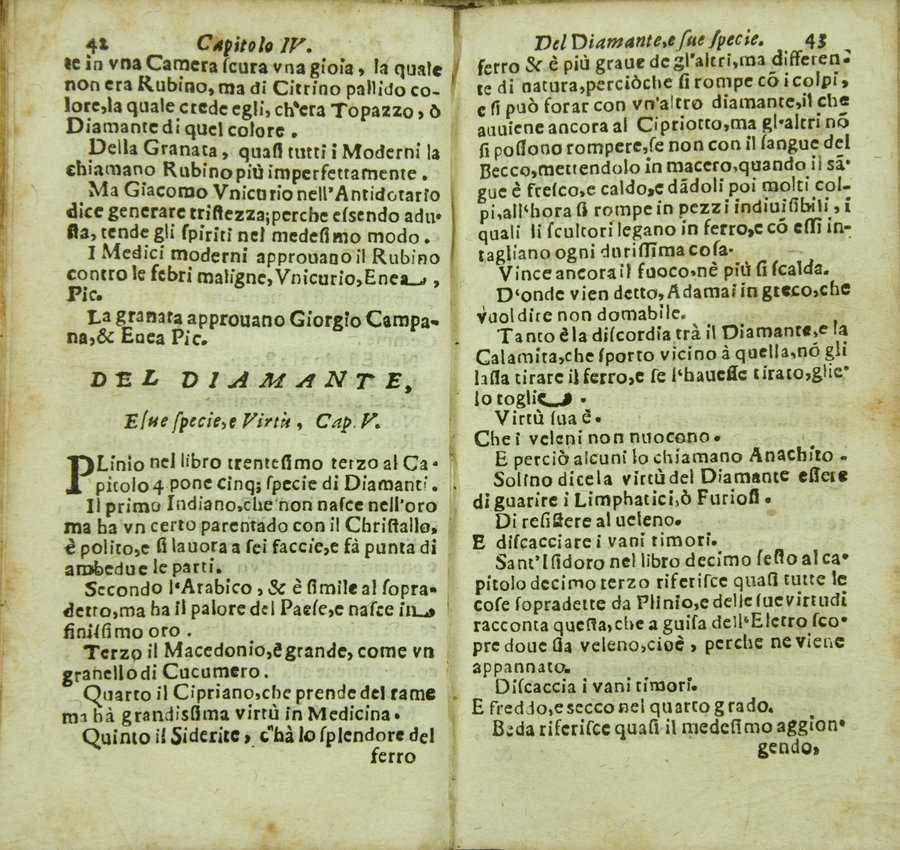 42 Capitolo IV.
te in vna Camera ſcura vna gioia, la quale
non era Rubino, ma di Citrino pallido co-
lore,la quale crede egli, ch'era Topazzo, ò
Diamante di quel colore.
Della Granata, quaſi tutti i Moderni la
chiamano Rubino più imperfettamente.
Ma Giacomo Vnicurio nell'Antidotario
dice generare triſtezza;perche eſsendo adu-
ſta, tende gli ſpiriti nel medeſimo modo.
I Medici moderni approuano il Rubino
contro le febri maligne, Vnicurio, Enea,
Pic.
La granata approuano Giorgio Campa-
na,& Enea Pic.
DEL DIAMANTE,
E ſue ſpecie, e Virtù, Cap. V.
PLinio nel libro trenteſimo terzo al Ca-
pitolo 4 pone cinq; ſpecie di Diamanti.
Il primo Indiano,che non naſce nell'oro
ma ha vn certo parentado con il Chriſtallo,
è polito,e ſi lauora a ſei faccie,e fà punta di
ambedue le parti.
Secondo l'Arabico, & è ſimile al ſopra-
detto,ma ha il palore del Paeſe,e naſce in
finiſſimo oro.
Terzo il Macedonio,è grande, come vn
granello di Cucumero.
Quarto il Cipriano,che prende del rame
ma hà grandissima virtù in Medicina.
Quinto il Siderite, c'hà lo ſplendore del
ferro
Del Diamante, e ſue ſpecie. 43
ferro & è più graue de gl'altri,ma differen-
te di natura,perciòche ſi rompe cō i colpi,
e ſi può forar con vn'altro diamante,il che
auuiene ancora al Cipriotto,ma gl'altri nō
ſi poſſono rompere,ſe non con il ſangue del
Becco,mettendolo in macero,quando il sā-
gue è freſco,e caldo,e dādoli poi molti col-
pi,all'hora ſi rompe in pezzi indiuiſibili, i
quali li ſcultori legano in ferro,e cō eſſi in-
tagliano ogni duriſſima coſa.
Vince ancora il fuoco,nè più ſi ſcalda.
D'onde vien detto, Adamas in greco,che
vuol dire non domabile.
Tanto è la diſcordia trà il Diamante,e la
Calamita,che ſporto vicino à quella,nō gli
laſſa tirare il ferro,e ſe l'haueſſe tirato,glie-
lo toglie.
Virtù ſua è.
Che i veleni non nuocono.
E perciò alcuni lo chiamano Anachito.
Solino dice la virtù del Diamante eſſere
di guarire i Limphatici,ò Furioſi.
Di reſiſtere al ueleno.
E diſcacciare i vani timori.
Sant'Iſidoro nel libro decimo ſeſto al ca-
pitolo decimo terzo riferiſce quaſi tutte le
coſe ſopradette da Plinio,e delle ſue virtudi
racconta queſta,che a guiſa dell'Eletro ſco-
pre doue ſta veleno,cioè, perche ne viene
appannato.
Diſcaccia i vani timori.
E freddo,e secco nel quarto grado.
Beda riferiſce quaſi il medeſimo aggion-
gendo,